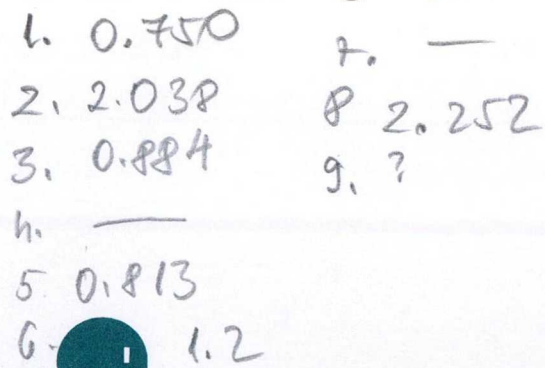 1. 0.750
2. 2.038
3. 0.884
4. —
5 0.813
6. 1.2
7. —
8 2.252
9. ?